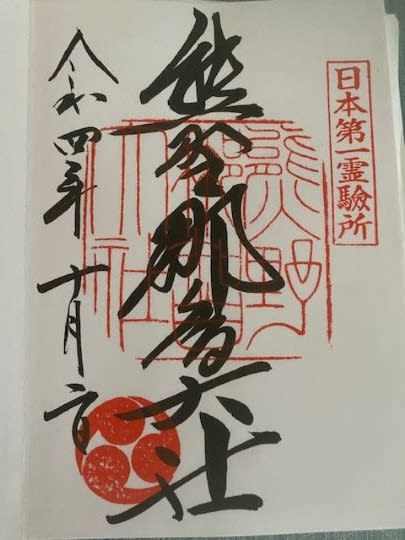 日本第一霊驗所
熊野那智大社
令和四年十月
熊野
大社